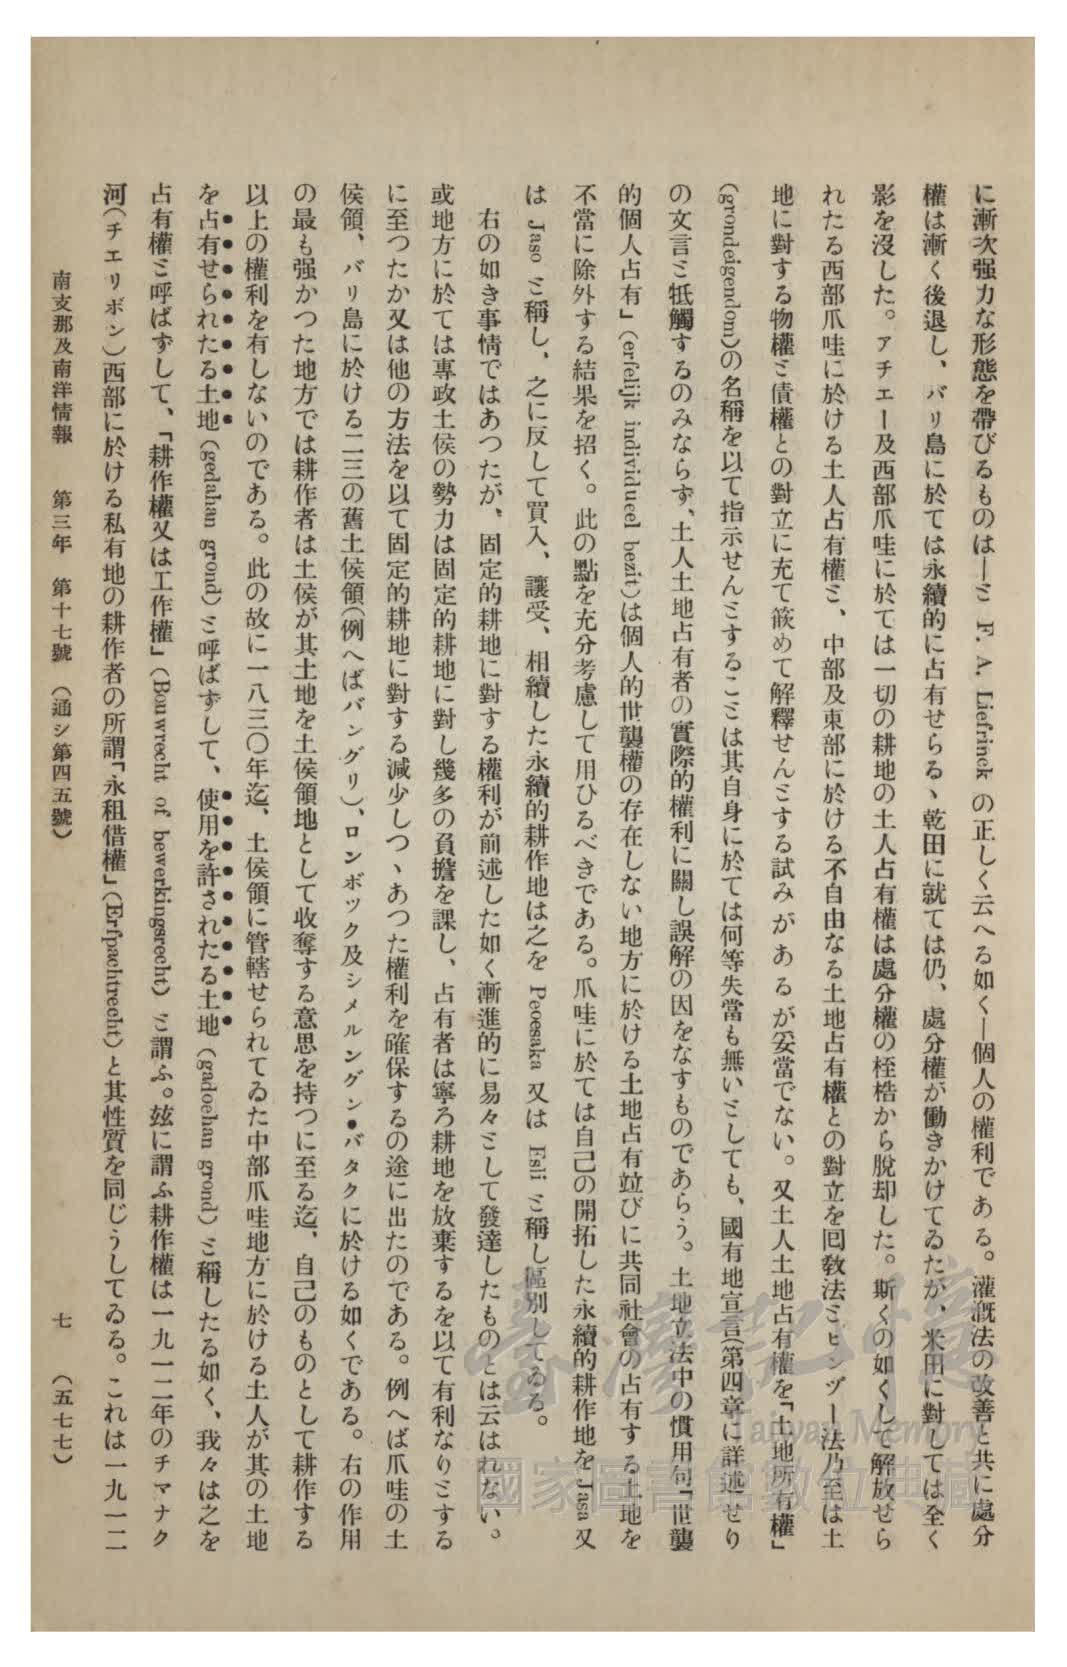 に漸次强力な形態を帶びるものは―ミ F. A. Liefrinck の正しく云へる如く―個人の權利である。灌漑法の改善と共に處分
權は漸く後退し、バリ島に於ては永續的に占有せらるゝ乾田に就ては仍、處分權が働きかけてゐたが、米田に對しては全く
影を沒した。アチエー及西部爪哇に於ては一切の耕地の土人占有權は處分權の桎梏から脫却した。斯くの如くして解放せら
れたる西部爪哇に於ける土人占有權ミ、中部及東部に於ける不自由なる土地占有權との對立を回敎法ミヒンヅー法乃至は土
地に對する物權ミ債權との對立に充て嵌めて解釋せんミする試みがあるが妥當でない。又土人土地占有權を「土地所有權」
(grondeigendom)の名稱を以て指示せんミするこミは其自身に於ては何等失當も無いミしても、國有地宣言(第四章に詳述せり
の文言ミ牴觸するのみならず、土人土地占有者の實際的權利に關し誤解の因をなすものであらう。土地立法中の慣用句「世襲
的個人占有」(erfelijk individueel bezit)は個人的世襲權の存在しない地方に於ける土地占有竝びに共同社會の占有する土地を
不當に除外する結果を招く。此の點を充分考慮して用ひるべきである。爪哇に於ては自己の開拓した永續的耕作地を Jasa 又
は Jaso ミ稱し、之に反して買入、讓受、相續した永續的耕作地は之を Peoesaka 又は Esli ミ稱し區別してゐる。
右の如き事情ではあつたが、固定的耕地に對する權利が前述した如く漸進的に易々ミして發達したものとは云はれない。
或地方に於ては專政土侯の勢力は固定的耕地に對し幾多の負擔を課し、占有者は寧ろ耕地を放棄するを以て有利なりミする
に至つたか又は他の方法を以て固定的耕地に對する減少しつゝあつた權利を確保するの途に出たのである。例へば爪哇の土
侯領、バリ島に於ける二三の舊土侯領(例へばバングリ)、ロンボツク及シメルングン・バタクに於ける如くである。右の作用
の最も强かつた地方では耕作者は土侯が其土地を土侯領地として收奪する意思を持つに至る迄、自己のものとして耕作する
以上の權利を有しないのである。此の故に一八三〇年迄、土侯領に管轄せられてゐた中部爪哇地方に於ける土人が其の土地
を占有せられたる土地 (gedahan grond) ミ呼ばずして、使用を許されたる土地 (gadoehan grond) ミ稱したる如く、我々は之を
占有權ミ呼ばずして、「耕作權又は工作權」(Bouwrecht of bewerkingsrecht) ミ謂ふ。玆に謂ふ耕作權は一九一二年のチマナク
河(チエリボン)西部に於ける私有地の耕作者の所謂「永租借權」(Erfpachtrecht)と其性質を同じうしてゐる。これは一九一二
南支那及南洋情報　第三年　第十七號　(通シ第四五號)　七　(五七七)
臺灣記憶
Taiwan Memory
國家圖書館數位典藏